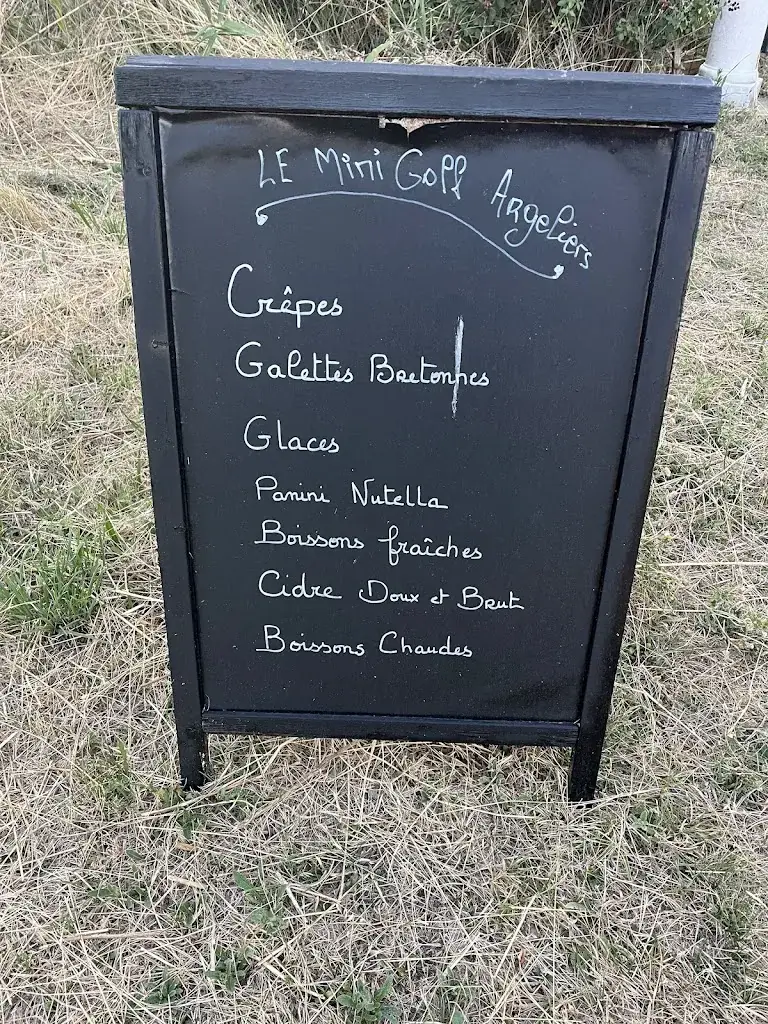 LE Mini Golf Argeliers
Crêpes
Galettes Bretonnes
Glaces
Panini Nutella
Boissons fraîches
Cidre Doux et Brut
Boissons Chaudes